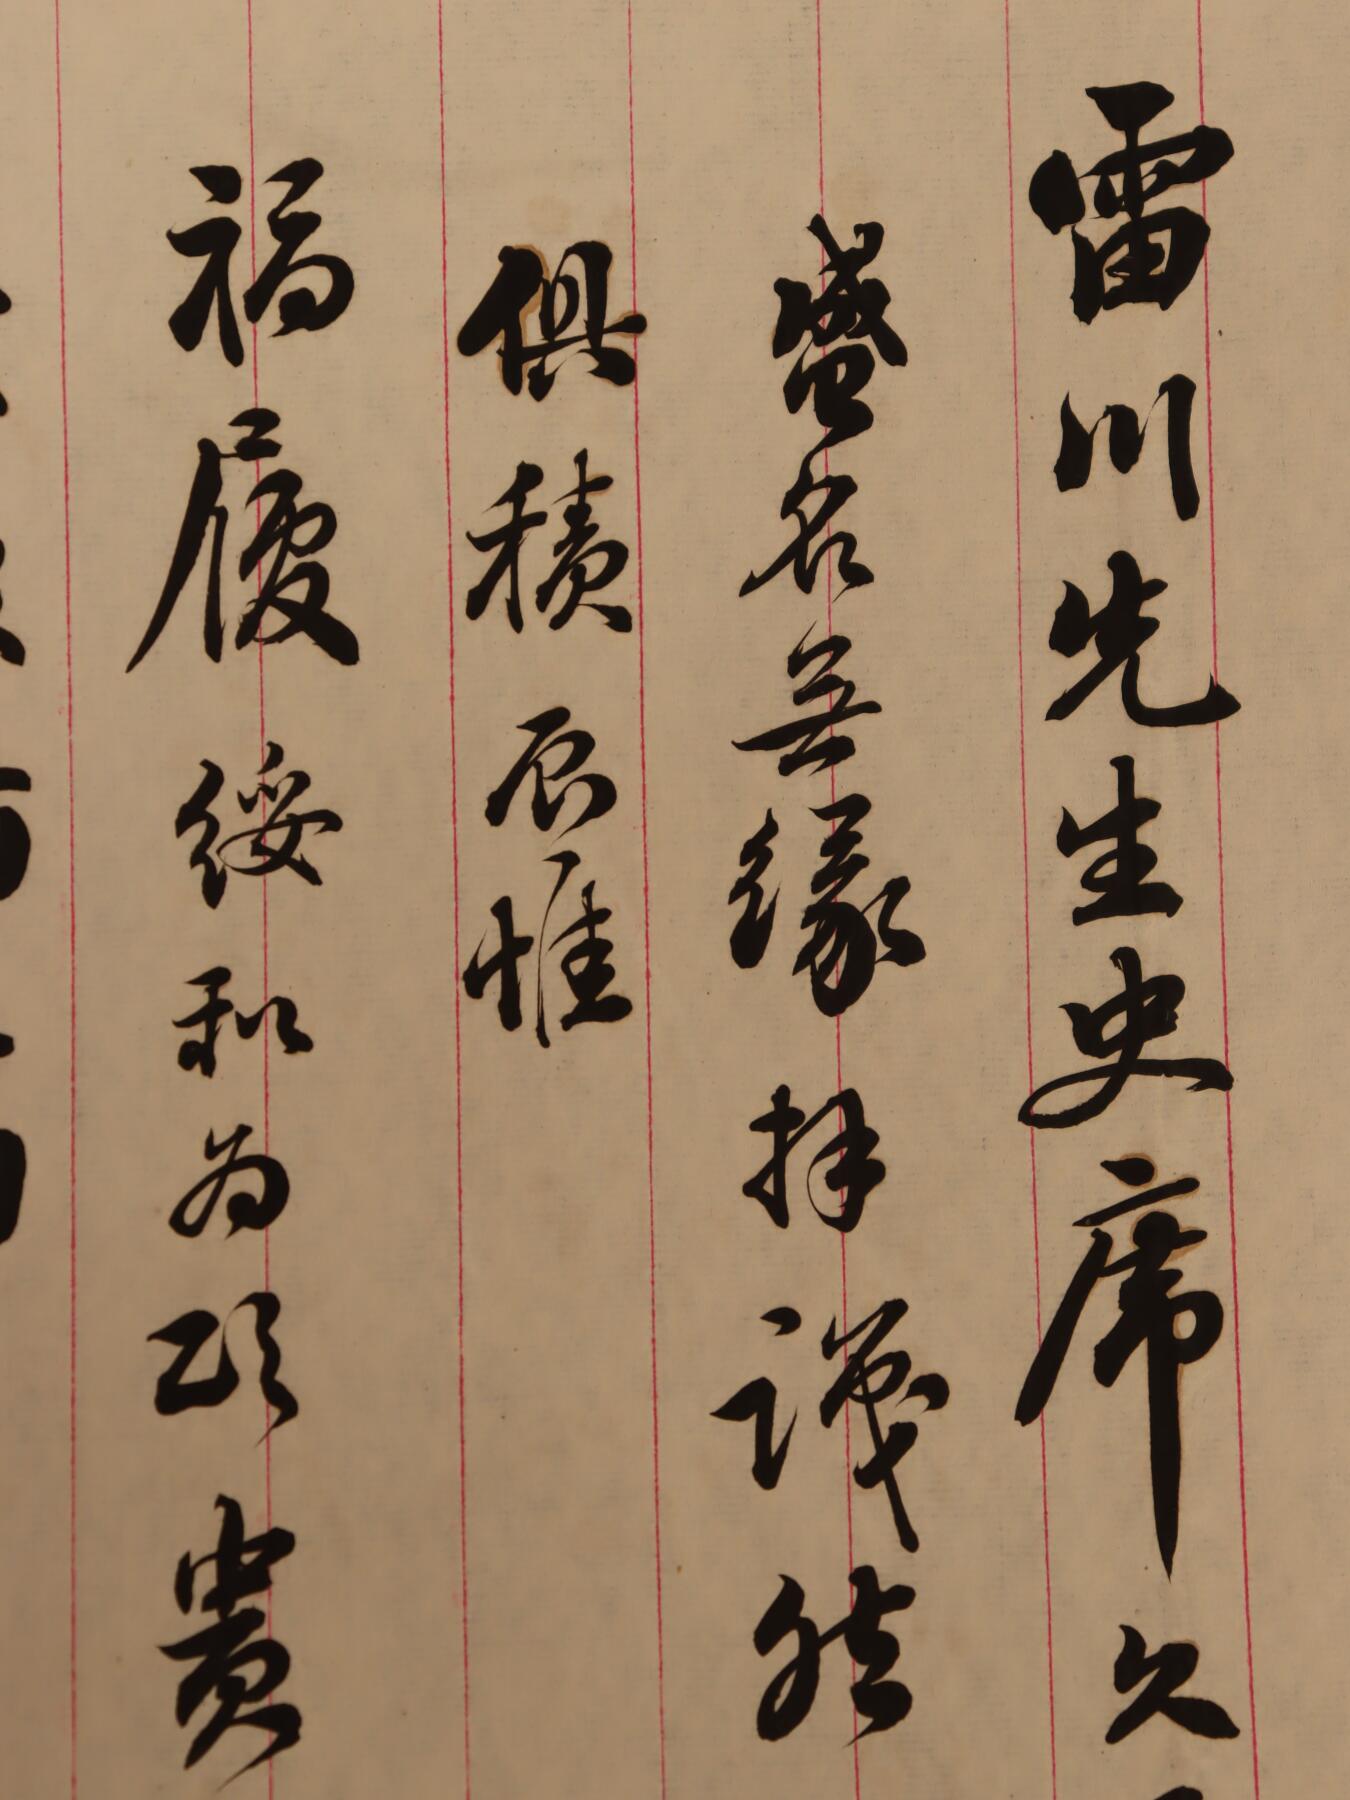 雷川先生史席久
盛名無緣拜識然
俱積辰惟
福履綏和為頌貴